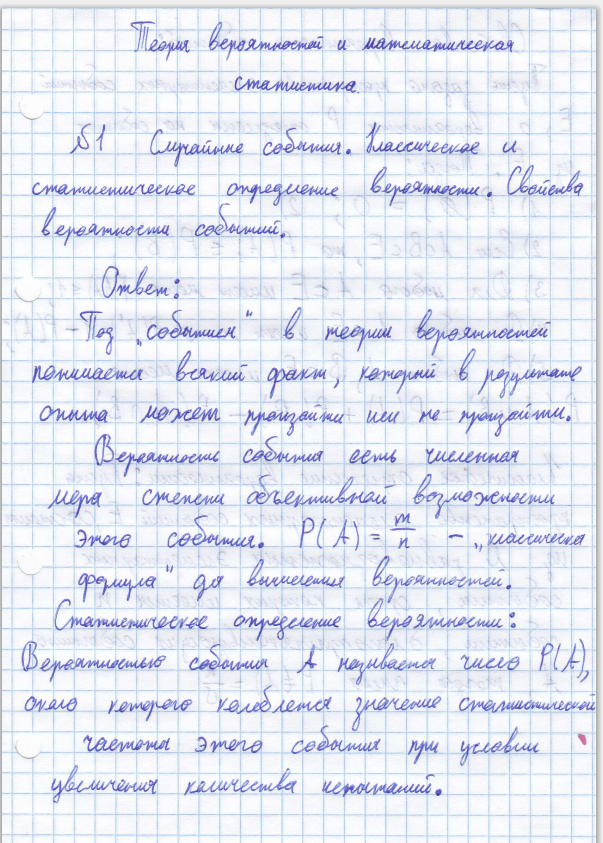 Теория вероятностей и математическая
статистика.
№1 Случайные события. Классическое и
статистическое определение вероятности. Свойства
вероятности событий.
Ответ:
- Под „событием“ в теории вероятностей
понимается всякий факт, который в результате
опыта может произойти или не произойти.
Вероятность события есть численная
мера степени объективной возможности
этого события. P(A) = m/n - „классическая
формула“ для вычисления вероятностей.
Статистическое определение вероятности:
Вероятностью события A называется число P(A),
около которого колеблется значение статистической
частоты этого события при условии
увеличения количества испытаний.